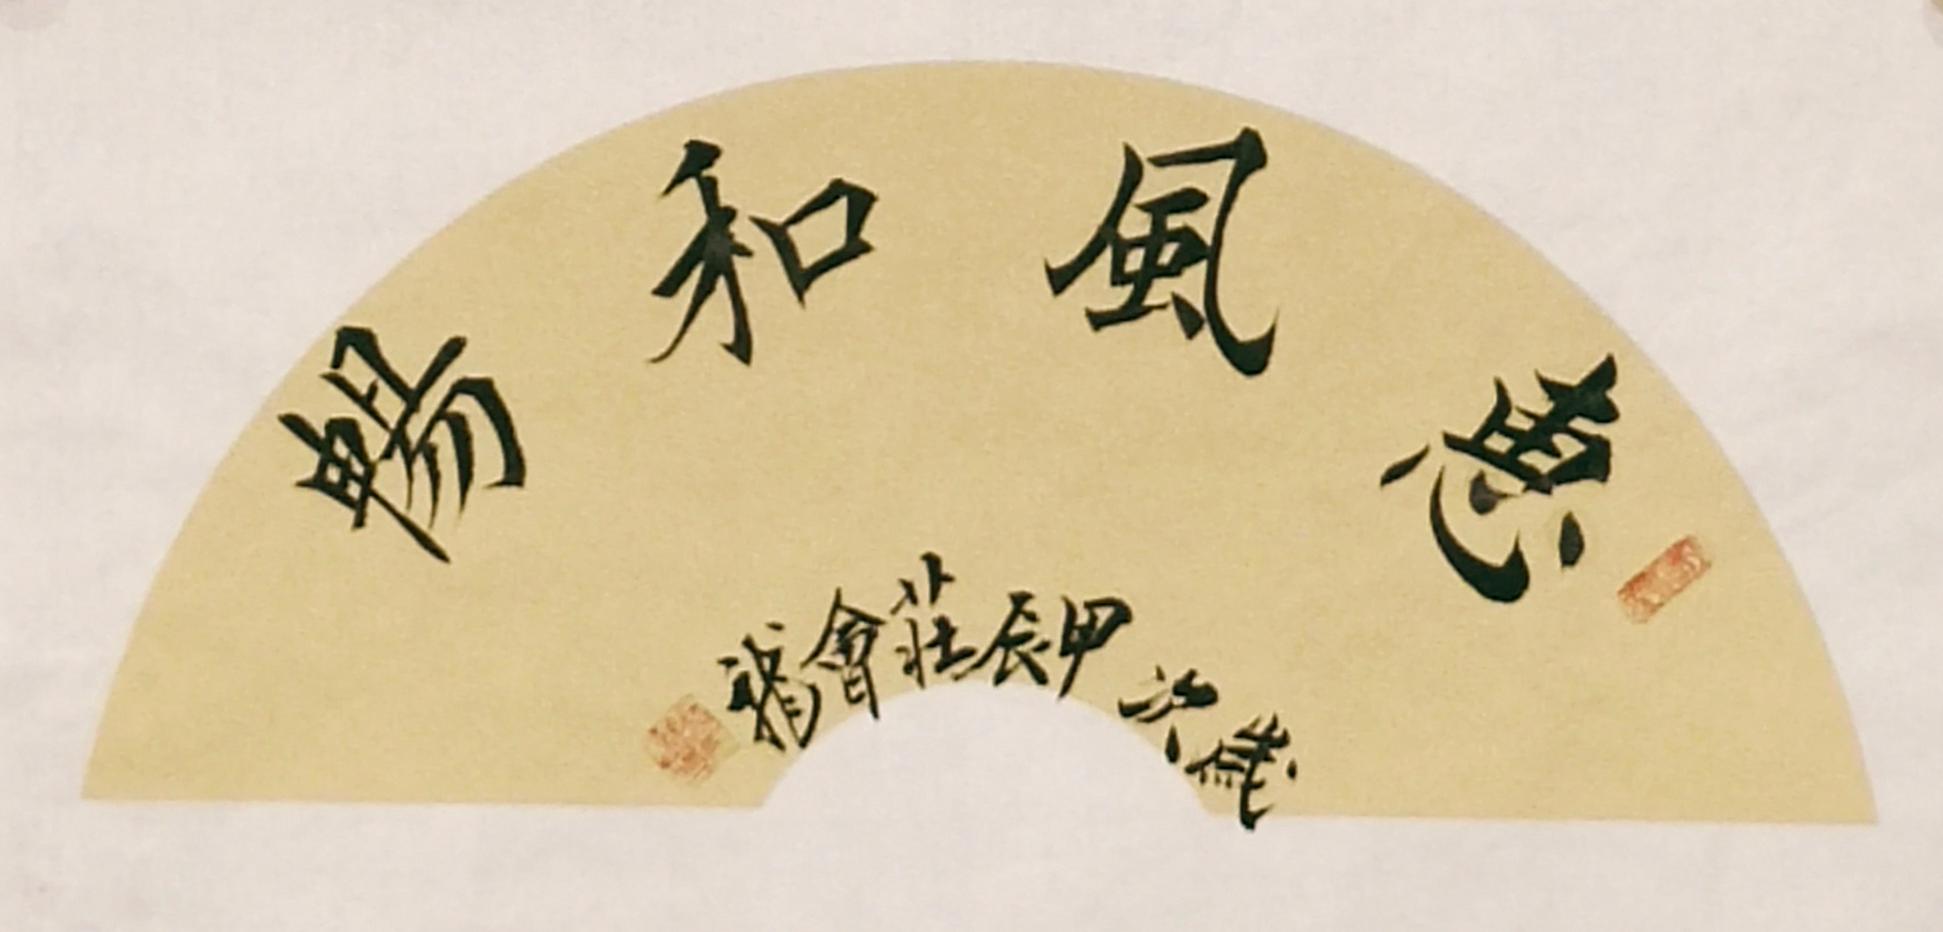 惠風和暢
歲次甲辰莊會